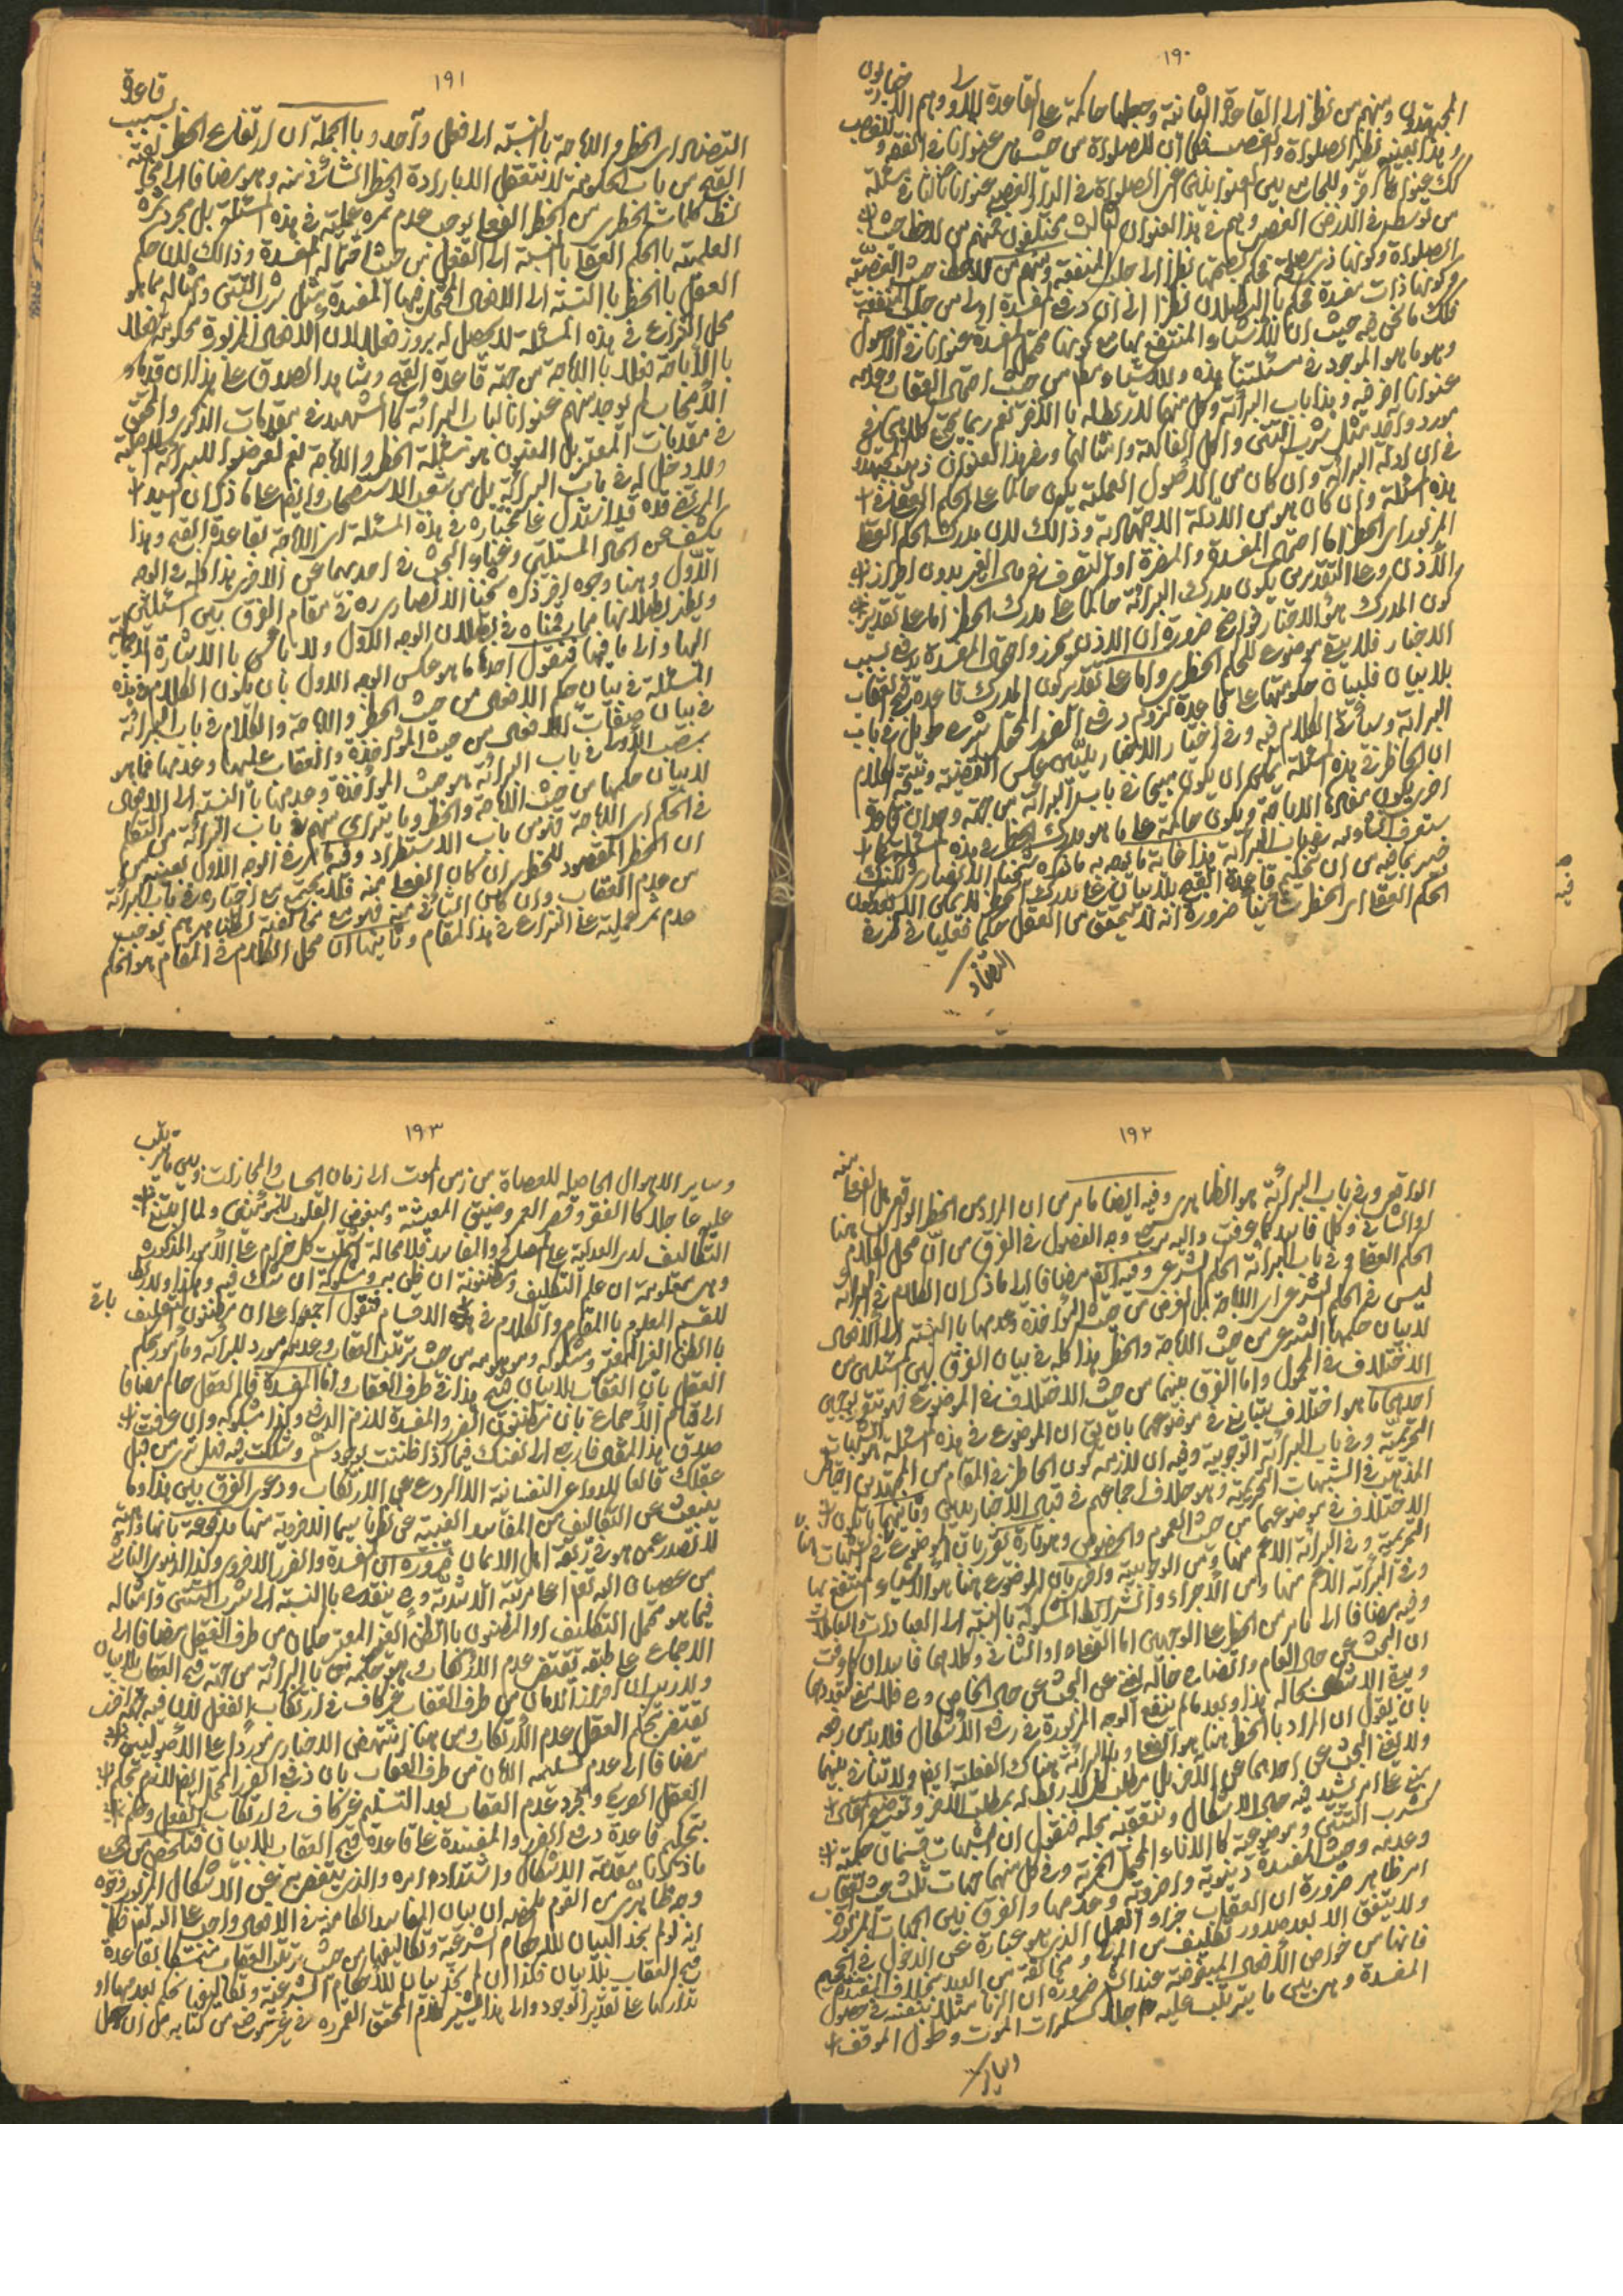 ١٩٠
المجتهدون ومنهم من نظر الى القاعدة الثانية وجعلها حاكمة على القاعدة الاولى وهم الاخباريون
وهذا بعينه نظير الصلوة والغصب فكما ان للصلوة من حيث هى عنوانا فى الفقه وللغصب
من توسط فى الارض الغصبى وهم فى هذا العنوان الثالث مختلفون فمنهم من لاحظ حيث
الصلوة وكونها ذى مصلحة فحكم بصحتها نظرا الى جلب المنفعة ومنهم من لاحظ حيث الغصبية
وكونها ذات مفسدة فحكم بالبطلان نظرا الى ان دفع المفسدة اولى من جلب المنفعة
فكك ما نحن فيه حيث ان للاشياء المنتفع بها مع كونها محتمل المفسدة عنوانا فى الاصول
وهو ما هو الموجود فى مسئلتنا هذه وللاشياء من حيث احتمال العقاب وعدمه
عنوانا اخر فيه وهذا باب البرائة وكل منهما لا ربط له بالاخر نعم ربما يجتمع كلاهما فى
مورد واحد مثل شرب التتن واكل الفاكهة وامثالهما وفى هذا العنوان ذهب المجتهدون
فى ان ادلة البرائة وان كان من الاصول العملية يكون حاكما على الحكم العقلى فى
هذه المسئلة وان كان هو من الادلة الاجتهادية وذالك لان مدرك الحكم العقلى
المزبور اى الحظر اما احتمال المفسدة والمضرة او التصرف فى مال الغير بدون احراز
الاذن وعلى التقديرين يكون مدرك البرائة حاكما على مدرك الحظر اما على تقدير
كون المدرك هو الاخبار فواضح ضرورة ان الاذن محرز واحتمال المفسدة مدفوع بسبب
الاخبار فلا يبقى موضوع للحكم الحظرى واما على تقدير كون المدرك قاعدة قبح العقاب
بلا بيان فلبيان حكومتها على قاعدة لزوم دفع الضرر المحتمل شرح طويل فى باب
البرائة وسيأتى الكلام فيه وفى اختيار الاخباريين عكس القضية ونتيجة الكلام
ان الحاظر فى هذه المسئلة يمكن ان يكون مبيحا فى باب البرائة من جهة وجدان قاعدة
اخرى يكون مفادها الاباحة ويكون حاكمة على ما هو مدرك الحظر فى هذه المسئلة كما
ستعرف انشاء الله فى باب البرائة هذا غاية ما يوجه به ما ذكره شيخنا الانصارى ولكنك
خبير بما فيه من ان تحكيم قاعدة القبح بلا بيان على مدرك الحظر لا يمكن الا بعد كون
الحكم العقلى اى الحظر شأنيا ضرورة انه لا يتحقق من العقل حكما فعليا فى طرفى
١٩١
النقيض اى الحظر والاباحة بالنسبة الى فعل واحد وبالجملة ان ارتفاع الحظر بسبب قاعدة
القبح من باب الحكومة لا يتعقل الا بارادة الحظر الشأنى منه وهو مضافا الى
العلمية بالحكم العقلى بالنسبة الى الفعل من حيث احتماله المفسدة وذالك لان حكم
العقل بالحظر بالنسبة الى الافعال المحتمل فيها المفسدة مثل شرب التتن وامثاله مما هو
محل النزاع فى هذه المسئلة لا يحصل له بروز فعلا لان الافعال المزبورة محكومة فعلا
بالاباحة فعلا بالاباحة من جهة قاعدة القبح وشاهد الصدق على هذا ان قدماء
الاصحاب لم يوجد منهم عنوانا لباب البرائة كالشهيد فى مقدمات الذكرى والمحقق
فى مقدمات المعتبر بل المعنون هو مسئلة الحظر والاباحة نعم تعرضوا للبرائة الاصلية
ولا دخل له فى باب البرائة بل من شعب الاستصحاب وايضا على ما ذكر ان السيد
المرتضى قده قد استدل على مختاره فى هذه المسئلة اى الاباحة بقاعدة القبح وهذا
يكشف عن اتحاد المسئلتين وغناء البحث فى احدهما عن الاخرى هذا كله فى الوجه
الاول وهنا وجوه اخر ذكره شيخنا الانصارى ره فى مقام الفرق بين المسئلتين
ويظهر بطلانها مما رقمناه فى بطلان الوجه الاول ولا باس بالاشارة الاجمالية
اليها والى ما فيها فنقول احدها ما هو عكس الوجه الاول بان يكون الكلام فى هذه
المسئلة فى بيان حكم الافعال من حيث الحظر والاباحة والكلام فى باب البرائة
فى بيان صفات الافعال من حيث المؤاخذة والعقاب عليها وعدمها فما هو
بصدد الاول فى باب البرائة هو حيث المؤاخذة وعدمها بالنسبة الى الافعال
لا بيان حكمها من حيث الاباحة والحظر وما يترائى منهم فى باب البرائة من التكلم
فى الحكم اى الاباحة فهو من باب الاستطراد وفيه ما مر فى الوجه الاول بعينه من
ان الحظر المقصود للحظر ان كان الفعلى منه فلا يجتمع مع اختياره فى باب البرائة
من عدم العقاب وان كان الشأنى منه فهو مع مخالفته لظاهرهم يوجب
عدم ثمر عملية على النزاع فى هذا المقام وثانيها ان محل الكلام فى المقام هو الحكم
١٩٢
الواقعى وفى باب البرائة هو الظاهرى وفيه ايضا ما مر من ان المراد من الحظر الواقعى هل الفعلى منه
او الشأنى وكل فاسد كما عرفت واليه يرجع وجه الفصول فى الفرق من ان محل الكلام هنا
الحكم العقلى وفى باب البرائة الحكم الشرعى وفيه ايضا مضافا الى ما ذكر ان الكلام فى البرائة
ليس فى الحكم الشرعى اى الاباحة بل الغرض من حيث المؤاخذة وعدمها بالنسبة الى الافعال
لا بيان حكمها الشرعى من حيث الاباحة والحظر هذا كله فى بيان الفرق بين المسئلتين من
الاختلاف فى المحمول واما الفرق بينهما من حيث الاختلاف فى الموضوع فهو بتقريرين
احدهما ما هو اختلاف بتباين فى موضوعهما بان يق ان الموضوع فى هذه المسئلة هو الشبهات
التحريمية وفى باب البرائة الوجوبية وفيه ان لازمه كون الحاظر فى المقام من المجتهدين اختار
المذهب فى الشبهات التحريمية وهو خلاف اجماعهم فى قبال الاخباريين وثانيهما ما يكون
الاختلاف فى موضوعهما من حيث العموم والخصوص وهو تارة يقرر بان الموضوع هنا الشبهات
التحريمية وفى البرائة الاعم منها ومن الوجوبية واخرى بان الموضوع هنا هو الاشياء المنتفع بها
وفى البرائة الاعم منها ومن الاجزاء والشرائط المشكوكة بالنسبة الى العبادات والمعاملات
وفيه مضافا الى ما مر من الحظر على الوجهين اما الفعلى او الشأنى وكلاهما فاسدان كما عرفت
ان البحث عن حال العام واتضاح حاله يغنى عن البحث عن حال الخاص
ويبقى الاشكال بحاله هذا وبعد ما لم ينفع الوجوه المزبورة فى رفع الاشكال فلا بد من رفعه
بان نقول ان المراد بالحظر هنا هو الفعلى وبالبرائة هناك الفعلية ايضا ولا تنافى بينهما
ولا يغنى البحث عن احدهما عن الاخر بل مطلب كل لا ربط له بمطلب الاخر
كشرب التتن وموضوعية كالاناء المحتمل الخمرية وفى كل منهما جهات ثلث حيث العقاب
وعدمه وحيث المفسدة دنيوية واخروية وعدمها والفرق بين الجهات المزبورة
امر ظاهر ضرورة ان العقاب جزاء العمل الذى هو عبارة عن الدخول فى الجحيم
ولا يتحقق الا بعد صدور تكليف من المولى ومخالفة من العبد بخلاف المفسدة
فانها من خواص الافعال المبغوضة عند الله ضرورة ان الزنا مثلا بنفسه فى حصول
المفسدة وهى بين ما يترتب عليه اجلا كسكرات الموت وطول الموقف
١٩٣
وساير الاهوال الحاصلة للعصاة من زمن الموت الى زمان الحساب والمجازات وبين ما يترتب
عليه عاجلا كالفقر وقصر العمر وضيق المعيشة ومبغوض القلوب للمؤمنين ولما ابتنى
التكاليف لدى العدلية على المصالح والمفاسد فلا محالة اشتملت كل حرام على الامور المذكورة
وهى معلومة ان علم التكليف ومظنونة ان ظن به ومشكوكة ان شك فيه وهكذا ولا ربط
للقسم المعلوم بالمقام والكلام فى باقى الاقسام فنقول اجمعوا على ان مظنون التكليف
بالظن الغير المعتبر ومشكوكه وموهومه من حيث ترتب العقاب وعدمه مورد للبرائة
العقل بان العقاب بلا بيان قبيح هذا فى طرف العقاب واما المفسدة فالعقل حاكم مضافا
الى قيام الاجماع بان مظنون الضرر والمفسدة لازم الدفع وكذا مشكوكه وان عرفت
صدق هذا المقال فارجع الى نفسك فيما اذا ظننت بوجود سم وشككت فيه فهل ترى من قبل
عقلك قالعا للدواعى النفسانية الا الردع عن الارتكاب ودعوى الفرق بين هذا وما
ينبعث عن التكاليف من المفاسد الغيبية عن نظرنا سيما الاخروية منها مدفوعة بانها
لا تصدر عمن هو فى ربقة اهل الايمان ضرورة ان المفسدة والضرر الاخروى وكذا الدنيوى الناشى
من عصيان اله تعالى اعلى مرتبة الاشدية وح ينقدح بالنسبة الى شرب التتن وامثاله
فيما هو محتمل التكليف او المظنون بالظن الغير المعتبر حكمان من طرف العقل مضافا الى
الاجماع على طبقه يقتضى عدم الارتكاب وهو حكمه بالبرائة من جهة قبح العقاب بلا بيان
ولا ريب ان احراز الامان من طرف العقاب غير كاف فى ارتكاب الفعل
يقتضى بحكم العقل عدم الارتكاب ومن هنا انتهض الاخبارى مورد على الاصوليين
مضافا الى عدم تسليمه الامان من طرف العقاب بان دفع الضرر المحتمل ايضا لازم بحكم
العقل الصريح ومجرد عدم العقاب بعد التسليم غير كاف فى ارتكاب الفعل وحكم
بتحكيم قاعدة دفع الضرر والمفسدة على قاعدة قبح العقاب بلا بيان فتلخص من
ما ذكرنا مقدمة الاشكال واشتداد امره والذى يتفصى به عن الاشكال المزبور وجوه
وجه ظاهرى من القوم ملخصه ان بيان المفاسد الكامنة فى الافعال واجب على اله تعالى فكما
انه لو لم نجد البيان للاحكام الشرعية وتكاليفها من حيث ترتب العقاب نتمسك بقاعدة
قبح العقاب بلا بيان فكذا ان لم نجد بيان للاحكام الشرعية وتكاليفها نحكم بعدمها او
تداركها على تقدير الوجود والى هذا يشير كلام المحقق القمى ره فى غير موضع من كتابه من ان